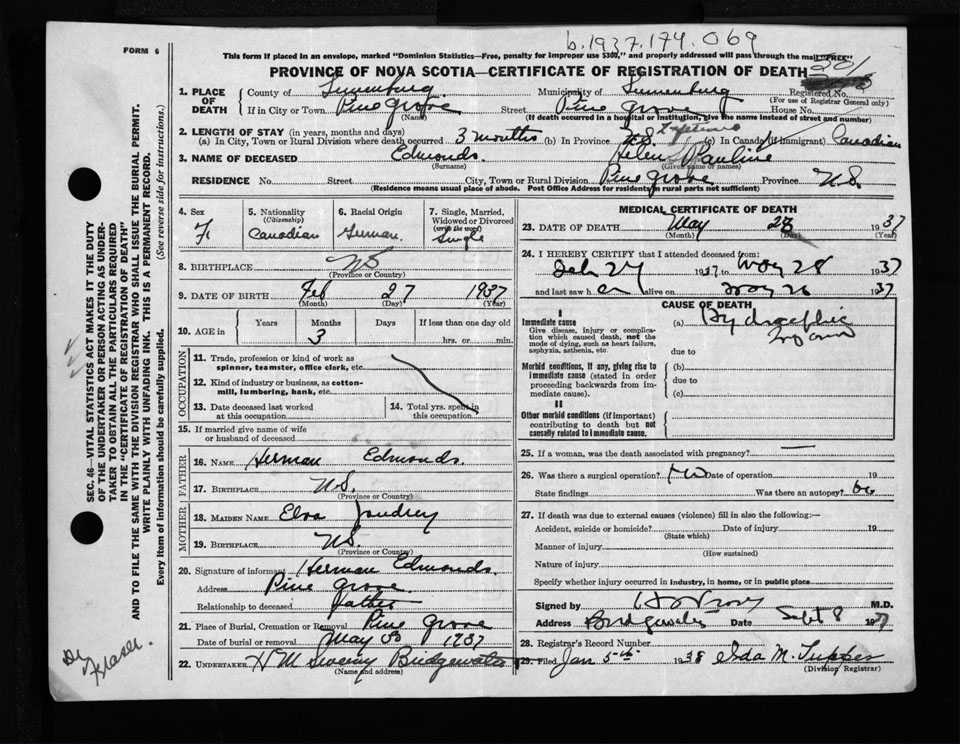 b.1937.174.069
FORM 6
This form if placed in an envelope, marked "Dominion Statistics—Free, penalty for improper use $300," and properly addressed will pass through the mail "FREE"
PROVINCE OF NOVA SCOTIA—CERTIFICATE OF REGISTRATION OF DEATH
1. PLACE OF DEATH
County of Lunenburg Municipality of Lunenburg Registered No.
(For use of Registrar General only)
If in City or Town Pine Grove Street Pine Grove House No.
(Name) (If death occurred in a hospital or institution, give the name instead of street and number)
2. LENGTH OF STAY (in years, months and days)
(a) In City, Town or Rural Division where death occurred 3 months (b) In Province N.S. Lifetime (c) In Canada (if immigrant) Canadian
3. NAME OF DECEASED Edmonds. Helen Pauline
(Surname) (Given name or names)
RESIDENCE No. Street City, Town or Rural Division Pine Grove Province N.S.
(Residence means usual place of abode. Post Office Address for residents in rural parts not sufficient)
4. Sex F
5. Nationality (Citizenship) Canadian
6. Racial Origin German
7. Single, Married, Widowed or Divorced (write the word) Single
8. BIRTHPLACE NS
(Province or Country)
9. DATE OF BIRTH Feb 27 1937
(Month) (Day) (Year)
10. AGE in Years Months 3 Days If less than one day old
hrs. or min.
OCCUPATION
11. Trade, profession or kind of work as spinner, teamster, office clerk, etc.
12. Kind of industry or business, as cotton-mill, lumbering, bank, etc.
13. Date deceased last worked at this occupation
14. Total yrs. spent in this occupation
15. If married give name of wife or husband of deceased
FATHER
16. NAME Herman Edmonds.
17. BIRTHPLACE N.S.
(Province or Country)
MOTHER
18. MAIDEN NAME Elva Jaudrey
19. BIRTHPLACE N.S.
(Province or Country)
20. Signature of informant Herman Edmonds.
Address Pine Grove
Relationship to deceased father
21. Place of Burial, Cremation or Removal Pine Grove
Date of burial or removal May 30 1937
22. UNDERTAKER H M Sweeny Bridgewater
(Name and address)
MEDICAL CERTIFICATE OF DEATH
23. DATE OF DEATH May 28 1937
(Month) (Day) (Year)
24. I HEREBY CERTIFY that I attended deceased from:
Feb 27 1937 to May 28 1937
and last saw her alive on May 26 1937
CAUSE OF DEATH
I
Immediate cause (a) Hydrocephlic
Give disease, injury or complication which caused death, not the mode of dying, such as heart failure, asphyxia, asthenia, etc.
due to
Morbid conditions, if any, giving rise to immediate cause (stated in order proceeding backwards from immediate cause). (b)
due to
(c)
II
Other morbid conditions (if important) contributing to death but not causally related to immediate cause.
25. If a woman, was the death associated with pregnancy?
26. Was there a surgical operation? no Date of operation 19
State findings Was there an autopsy? no
27. If death was due to external causes (violence) fill in also the following:—
Accident, suicide or homicide? Date of injury 19
(State which)
Manner of injury
(How sustained)
Nature of injury
Specify whether injury occurred in industry, in home, or in public place
Signed by M.D.
Address Bridgewater Date Sept 8 1937
28. Registrar's Record Number
29. Filed Jan 5th 1938 Ida M. Tupper
(Division Registrar)
SEC. 46—VITAL STATISTICS ACT MAKES IT THE DUTY
OF THE UNDERTAKER OR PERSON ACTING AS UNDER-
TAKER TO OBTAIN ALL THE PARTICULARS REQUIRED
IN THE "CERTIFICATE OF REGISTRATION OF DEATH"
AND TO FILE THE SAME WITH THE DIVISION REGISTRAR WHO SHALL ISSUE THE BURIAL PERMIT.
WRITE PLAINLY WITH UNFADING INK. THIS IS A PERMANENT RECORD.
Every item of information should be carefully supplied. (See reverse side for instructions.)
Dr. Fraser.